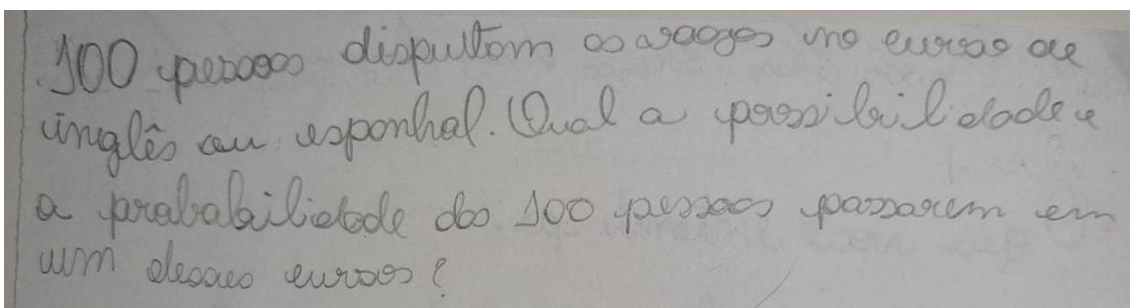 100 pessoas dispultam as vagas no curso de
inglês ou esponhal. Qual a possibilidade e
a probabilidade das 100 pessoas passarem em
um desses cursos?